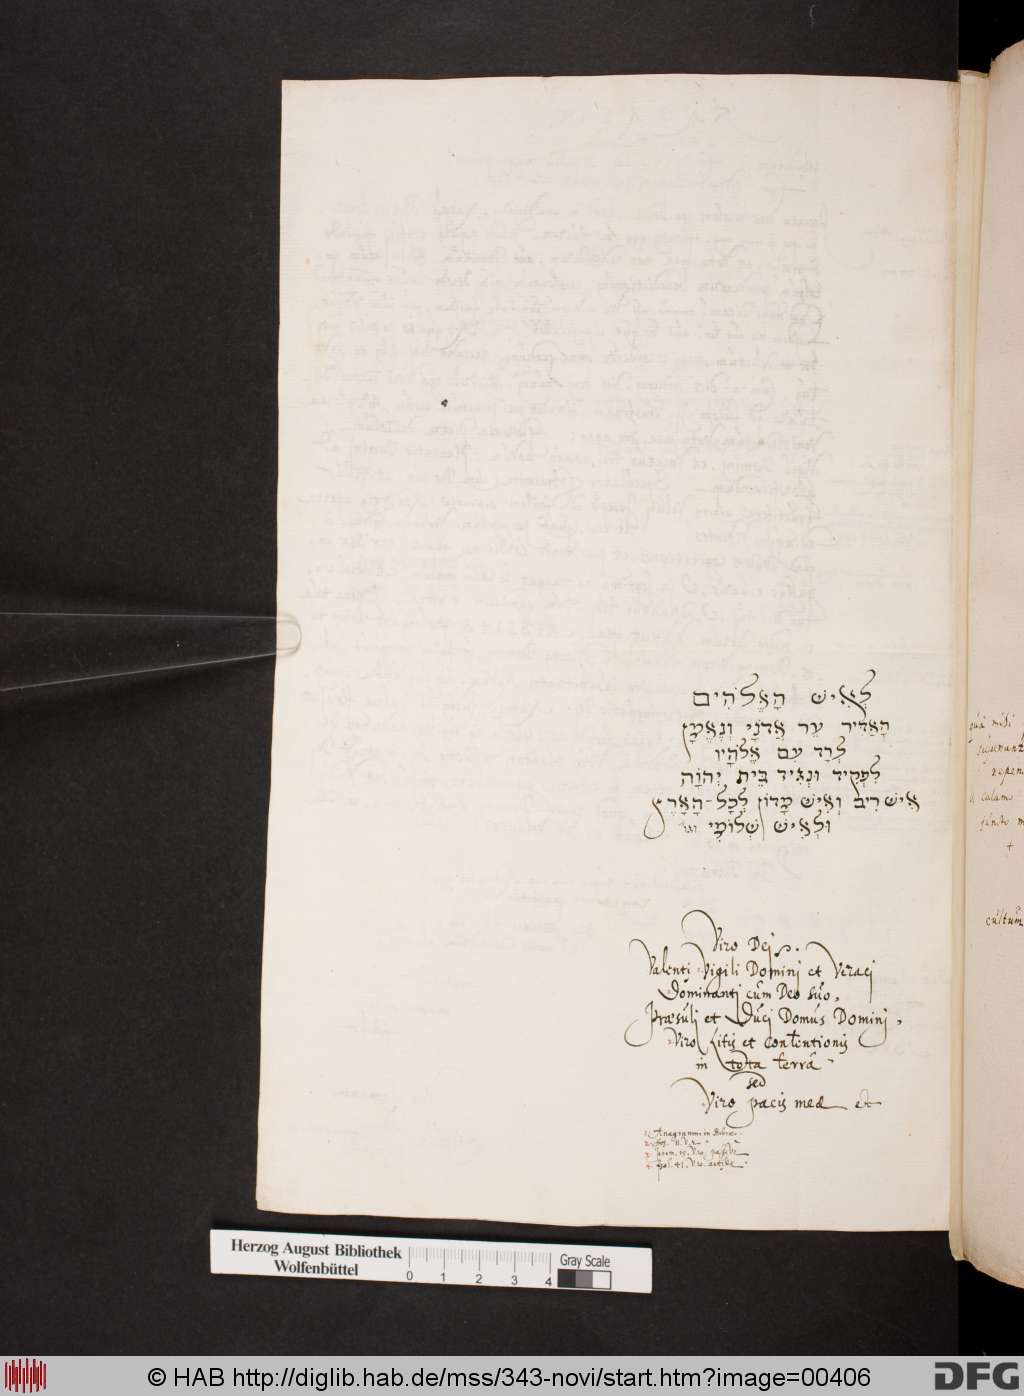 לְאִישׁ הָאֱלֹהִים
הָאַדִּיר עֵר אֲדֹנָי וְנֶאֱמָן
לְרָד עִם אֱלֹהָיו
לִפְקִיד וּנְגִיד בֵּית יְהוָֹה
אִישׁ רִיב וְאִישׁ מָדוֹן לְכָל־הָאָרֶץ
וּלְאִישׁ שְׁלוֹמִי וגו
Viro Dei
Valenti Vigili Domini et Veraci
Dominanti cum Deo suo,
Præsuli et Duci Domus Domini,
Viro Litis et Contentionis
in tota terrâ
sed
Viro pacis meæ etc
1. Anagramm in
2. Hos. 11. V. 12
3. Jerem. 15. V. 10. passivè
4. Psal. 41. V. 10. activè
quâ misi
repen
calamo
sancto
†
cultum
Herzog August Bibliothek
Wolfenbüttel
0 1 2 3 4
Gray Scale
© HAB http://diglib.hab.de/mss/343-novi/start.htm?image=00406
DFG